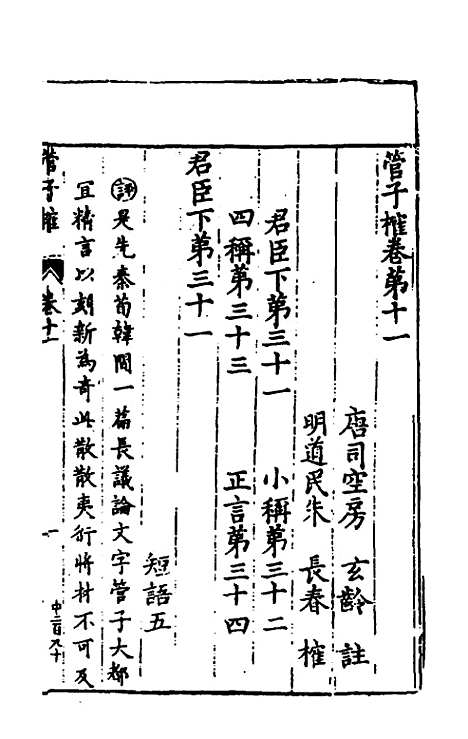 管子榷卷第十一
唐司空房 玄齡 註
明道民朱 長春 榷
君臣下第三十一 小稱第三十二
四稱第三十三 正言第三十四
君臣下第三十一
短語五
評是先秦荀韓間一篇長議論文字管子大都
宜精言以刻新為奇此散散夷衍將材不可及
管子榷 卷十一 一